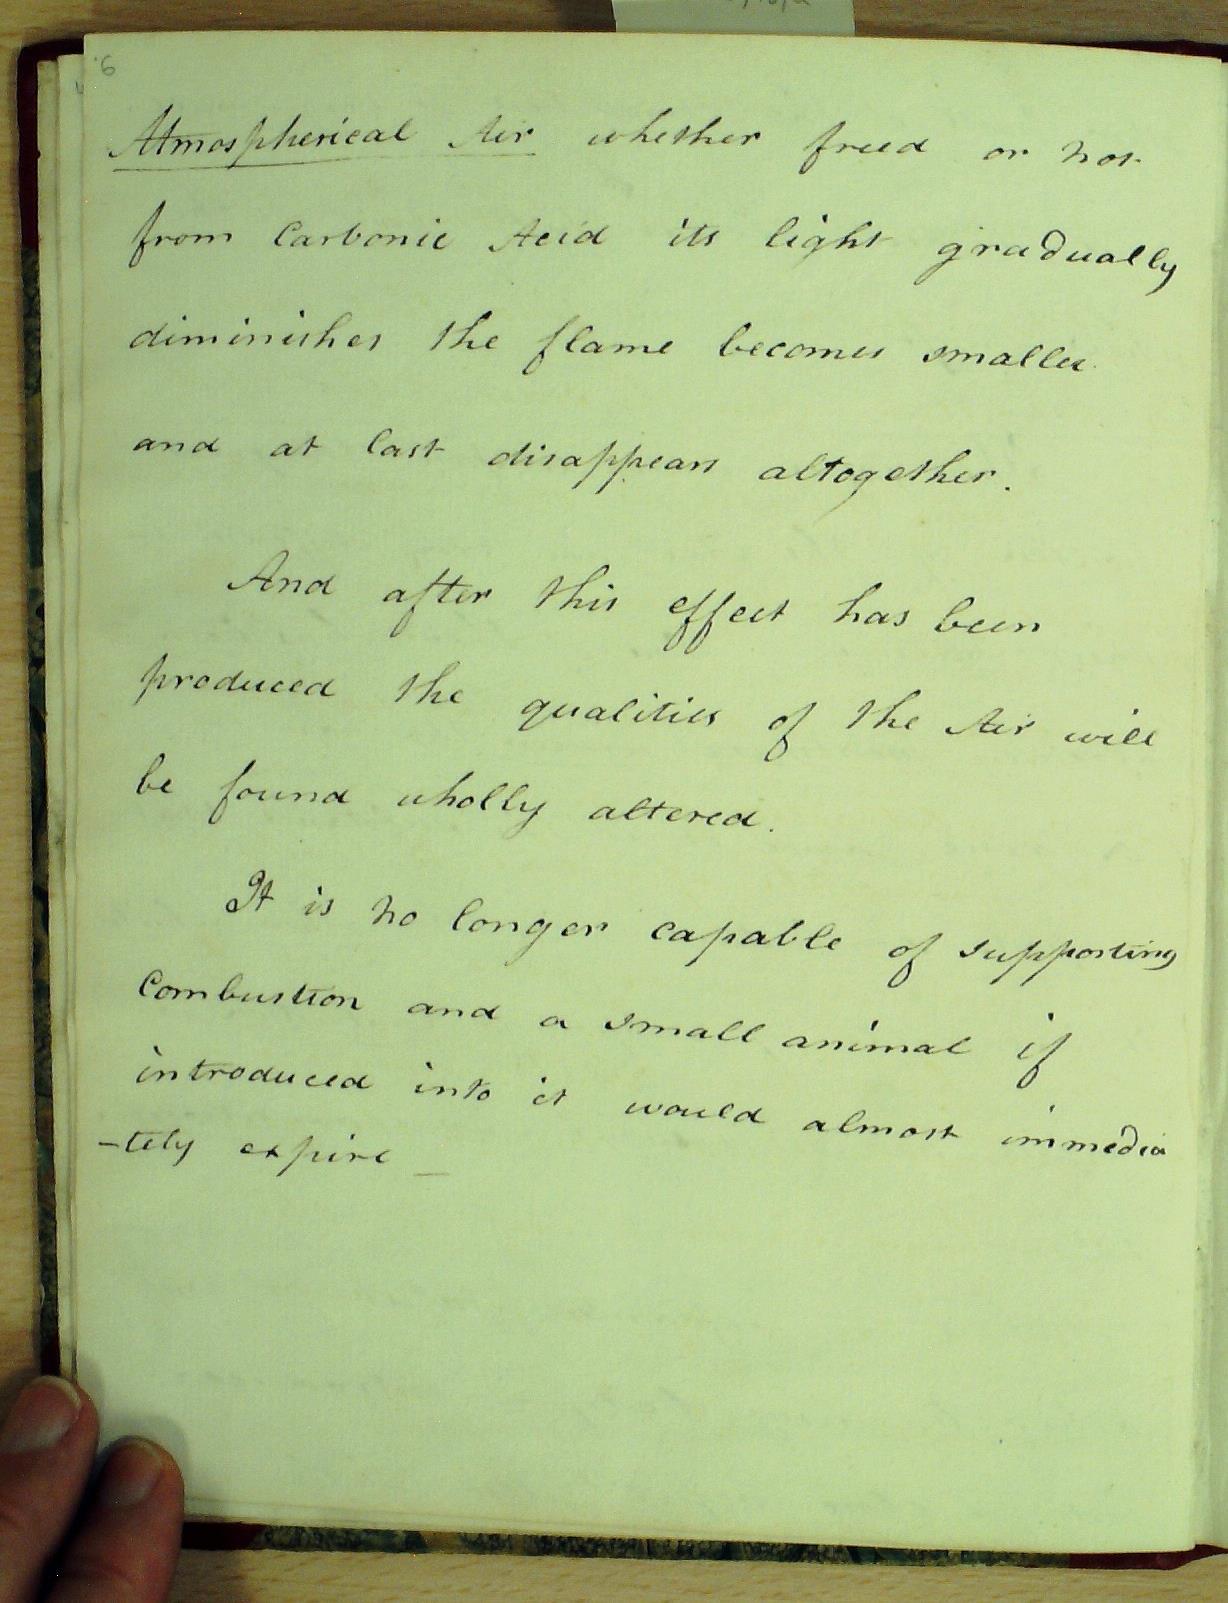 6
Atmospherical Air whether freed or not
from Carbonic Acid its light gradually
diminishes the flame becomes smaller
and at last disappears altogether.
And after this effect has been
produced the qualities of the Air will
be found wholly altered.
It is no longer capable of supporting
Combustion and a small animal if
introduced into it would almost immedia
-tely expire _